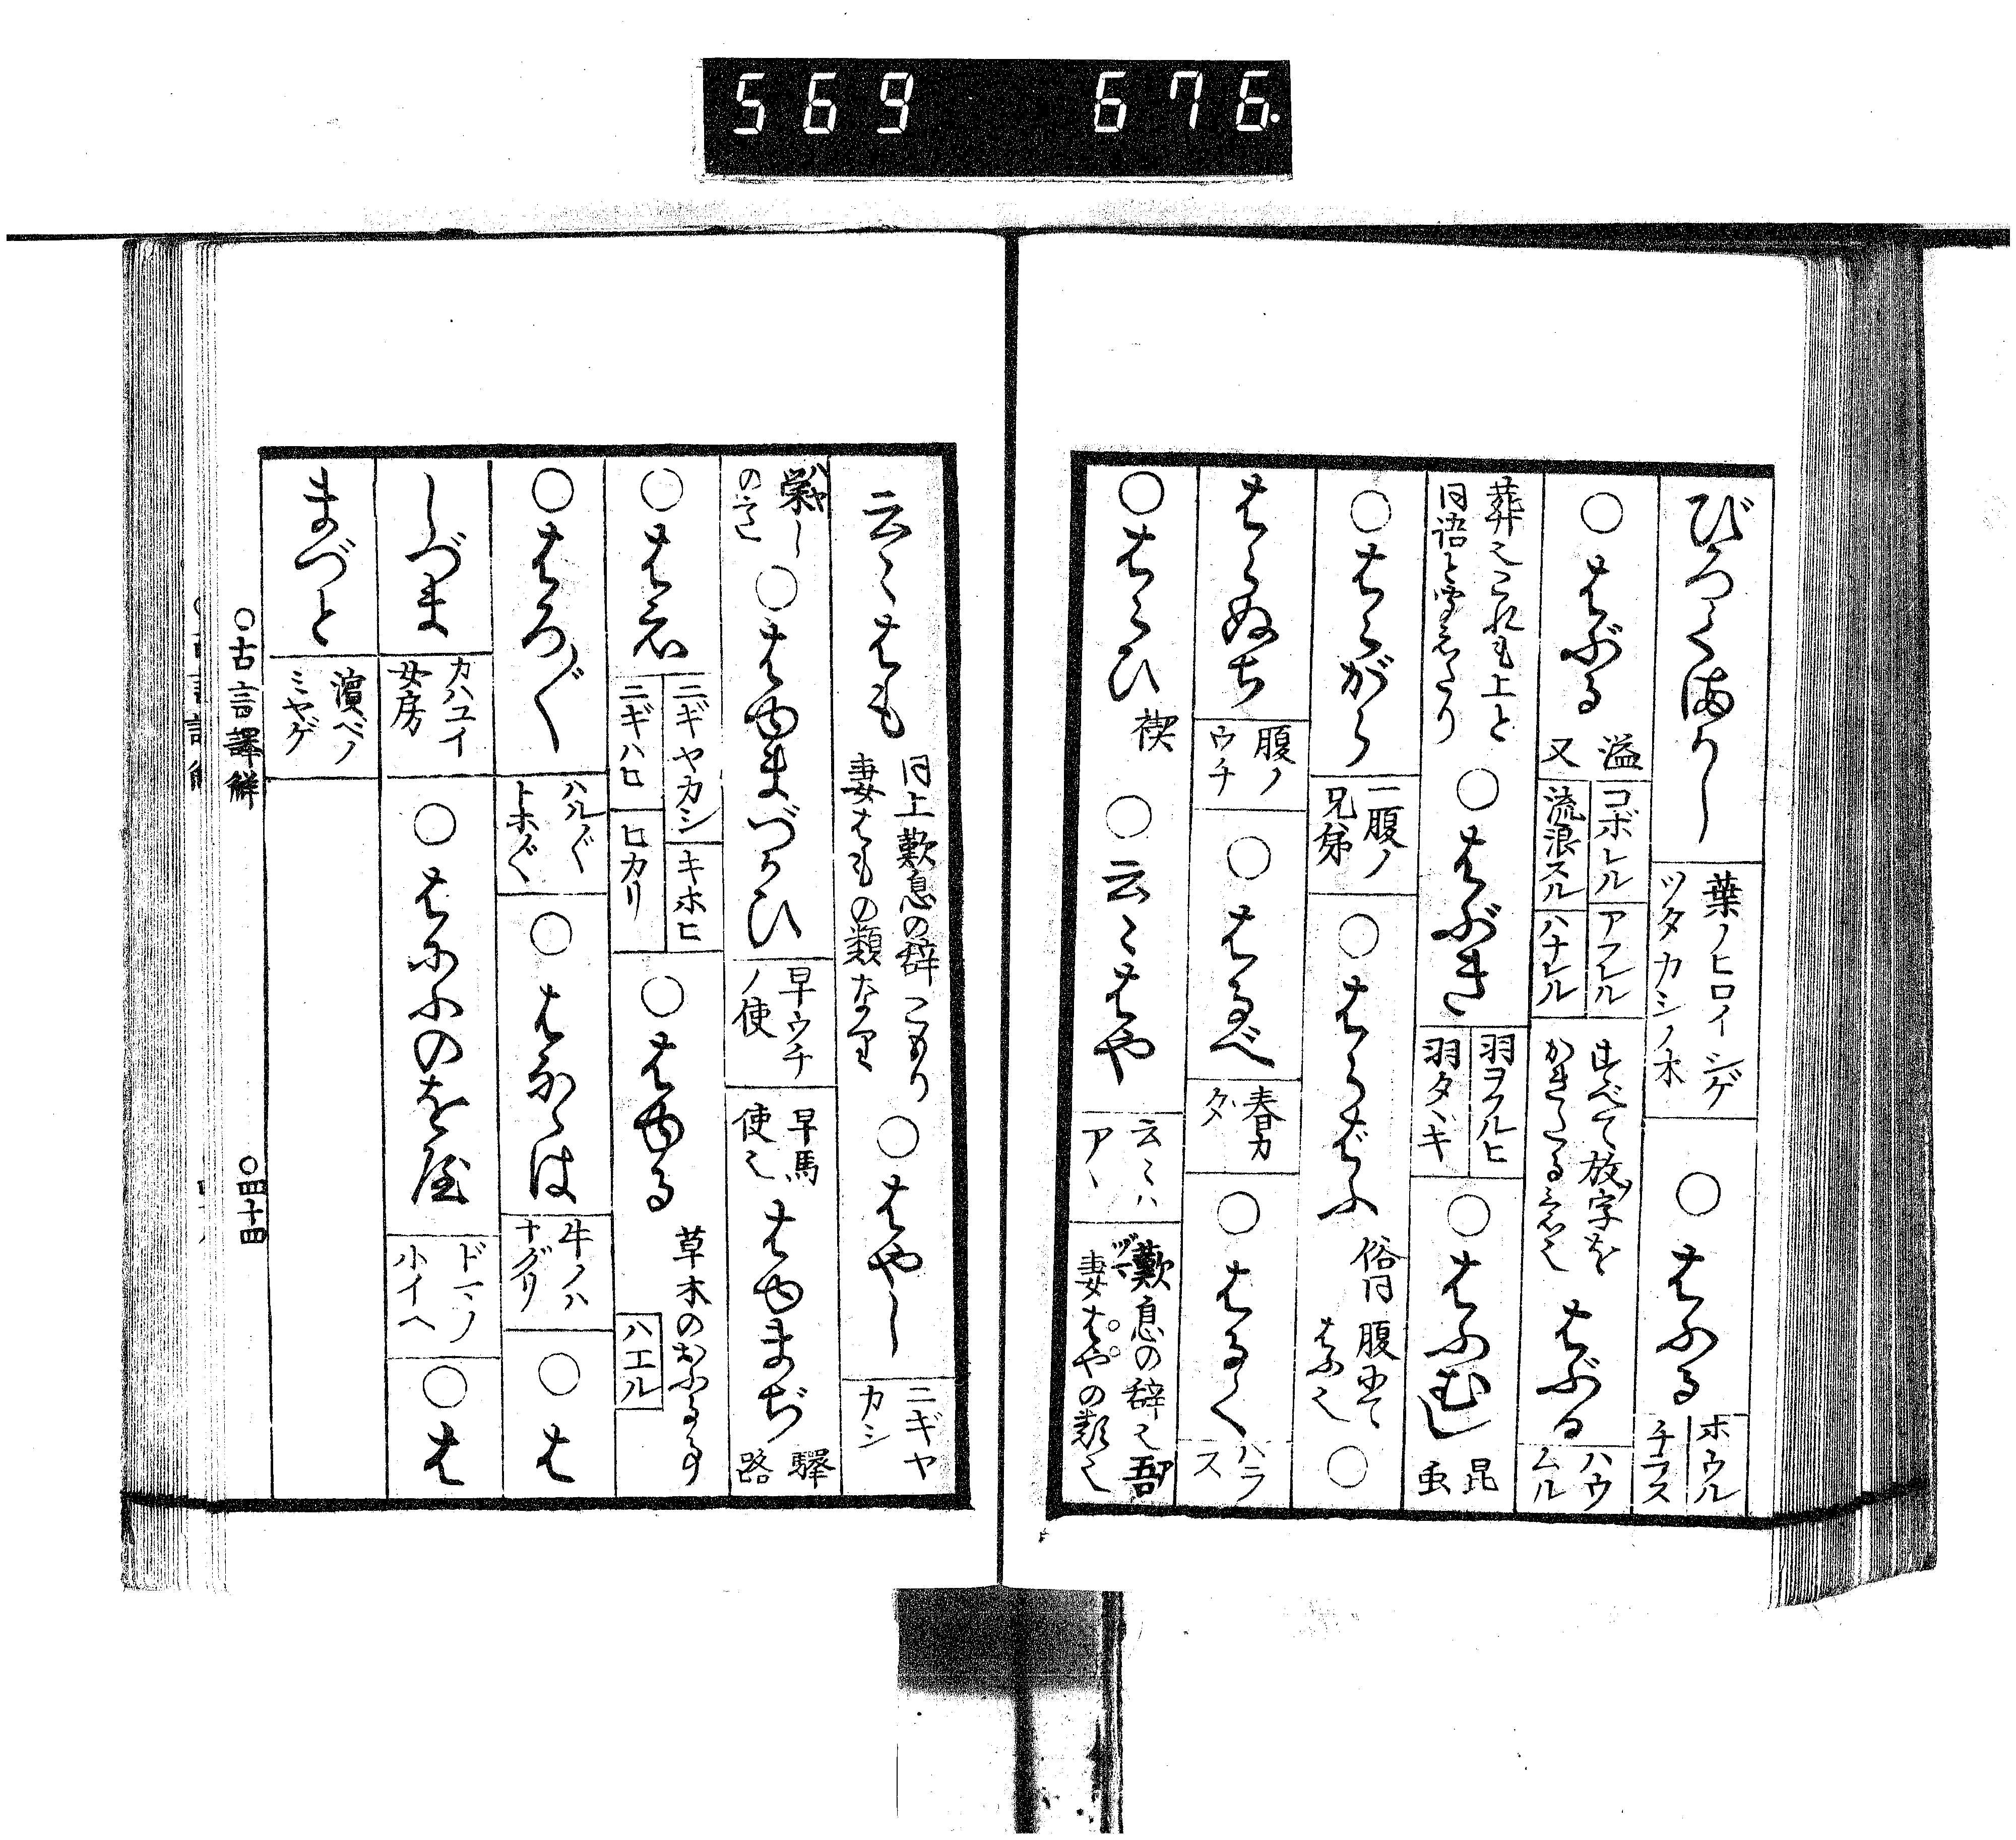 569 676.
びろくまかし 葉ノヒロイシゲツタカシノ木 ○はふる ホウルチラス
○はぶる 溢又 コボレルアフレル流浪スルハナレル すべて放字をかきたる意也 はぶる ハウムル
葬也これも上と同語と常〻 ○はぶき 羽ヲフルヒ羽タヽキ ○はふむし 昆虫
○はらがら 一腹ノ兄弟 ○はらばふ 俗同腹にてはふ也 ○
はらぬち 腹ノウチ ○はるべ 春カタ ○はるく ハラス
○はらひ 禊 ○云〻はや 云〻ハアヽ 歎息の辞也吾妻はやの類也
云〻はも 同上歎息の辞こもり妻はもの類なり ○はやし ニギヤカシ
栄しのこと ○はゆまづかひ 早ウチノ使 早馬使也 はゆまぢ 驛路
○はえ ニギヤカシキホヒニギハヒヒカリ ○はゆる 草木のおふる事 ハエル
○はろ〲 ハル〲トホ〲 ○はなゝは 牛ノハナグリ ○は
しづま カハユイ女房 ○はにふのを屋 ドマノ小イヘ ○は
まづと 濱ベノミヤゲ
○古言譯解 ○四十四